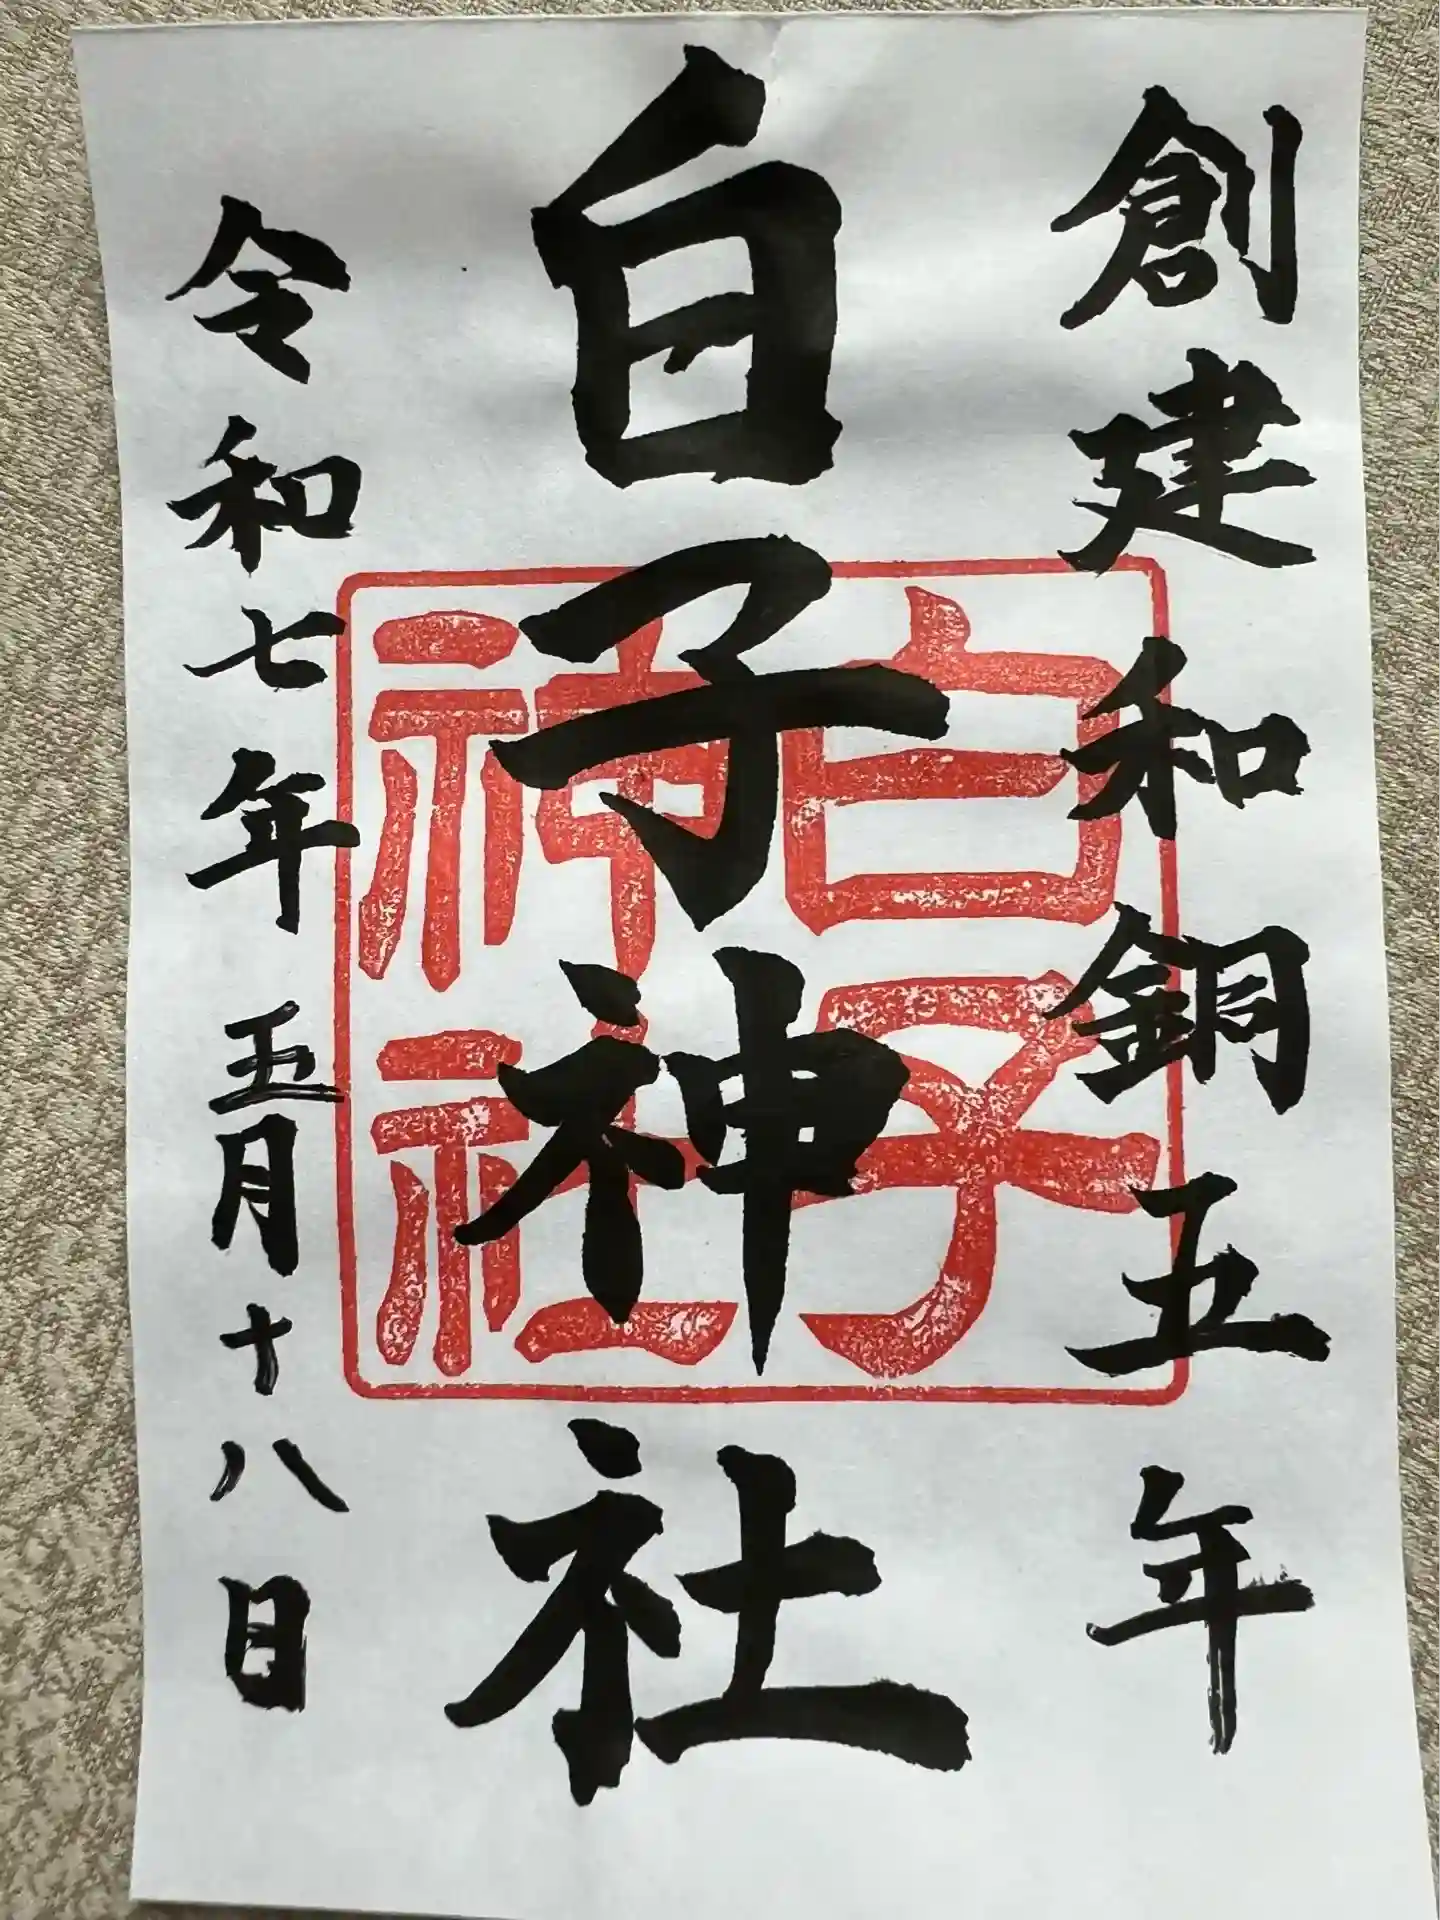 創建和銅五年
白子神社
令和七年五月十八日
白子
神社